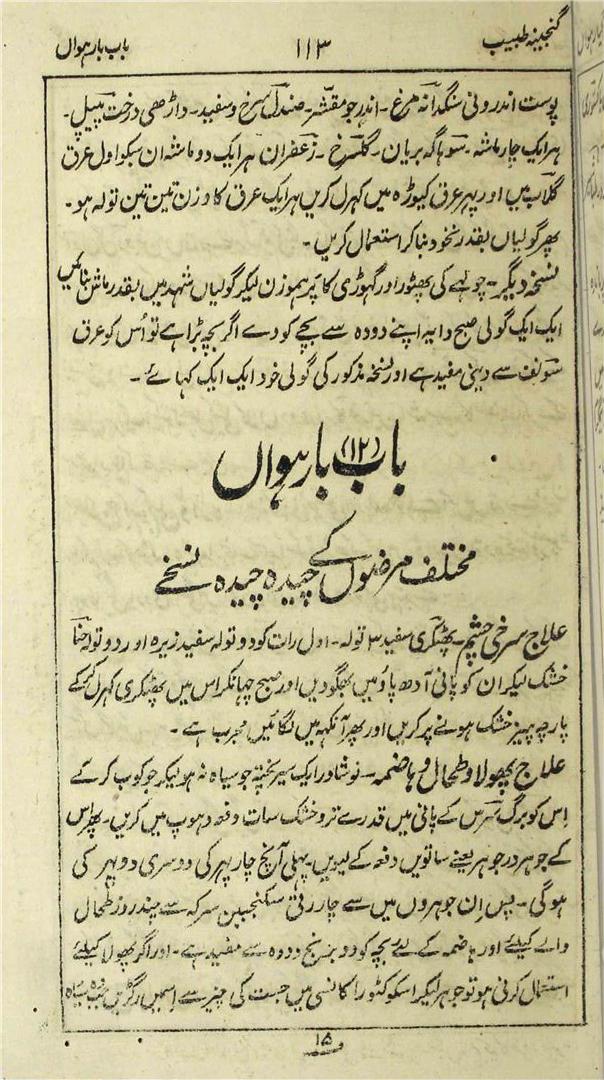 گنجینہ طبیب
۱۱۳
باب بارہواں
پوست اندرونی سنگدانہ مرغ۔ اندرجو مقشر۔ صندل سرخ و سفید۔ داڑھی درخت پیپل۔
ہر ایک چار ماشہ۔ سوہاگہ بریان۔ گلسرخ۔ زعفران ہر ایک دو ماشہ ان سبکو اول عرق
گلاب میں اور پہر عرق کیوڑہ میں کہرل کریں ہر ایک عرق کا وزن تین تین تولہ ہو۔
پھر گولیاں بقدر نخود بنا کر استعمال کریں۔
نسخہ دیگر۔ چولہے کی بھٹور اور گہوڑی کا پر ہموزن لیکر گولیاں شہد میں بقدر ماش بنائیں
ایک ایک گولی صبح دایہ اپنے دودہ سے بچے کو دے اگر بچہ بڑا ہے تو اُس کو عرق
سونف سے دینی مفید ہے اور نسخہ مذکور کی گولی خود ایک ایک کہائے۔
باب (۱۲) بارہواں
مختلف مرضوں کے چیدہ چیدہ نسخے
علاج سرخی چشم۔ پھٹکری سفید ۳ تولہ۔ اول رات کو دو تولہ سفید زیرہ اور دو تولہ حنا
خشک لیکر ان کو پانی آدھ پاؤ میں بھگو دیں اور صبح چہانکر اس میں پھٹکری کہرل کر کے
پارچہ پیز خشک ہونے پر کریں اور پھر آنکہہ میں لگائیں مجرب ہے۔
علاج پھولا و طحال و ہاضمہ۔ نوشادر ایک سیر پختہ جو سیاہ نہ ہو لیکر جو کوب کر کے
اِس کو برگ سرس کے پانی میں قدرے تر و خشک سات دفعہ دہوپ میں کریں۔ پھر اِس
کے جوہر در جوہر یعنے ساتویں دفعہ کے لیویں۔ پہلی آنچ چار پہر کی دوسری دو پہر کی
ہوگی۔ پس اِن جوہروں میں سے چار رتی سکنجبین سرکہ سے چند روز طحال
والے کیلئے اور ہاضمہ کے لئے بچہ کو دو برنج دودہ سے مفید ہے۔ اور اگر پھولا کیلئے
استعمال کرنی ہو تو جوہر لیکر اسکو کٹورا کانسی میں جست کی چیز سے اِسمیں رگڑیں جب سیاہ
۱۵